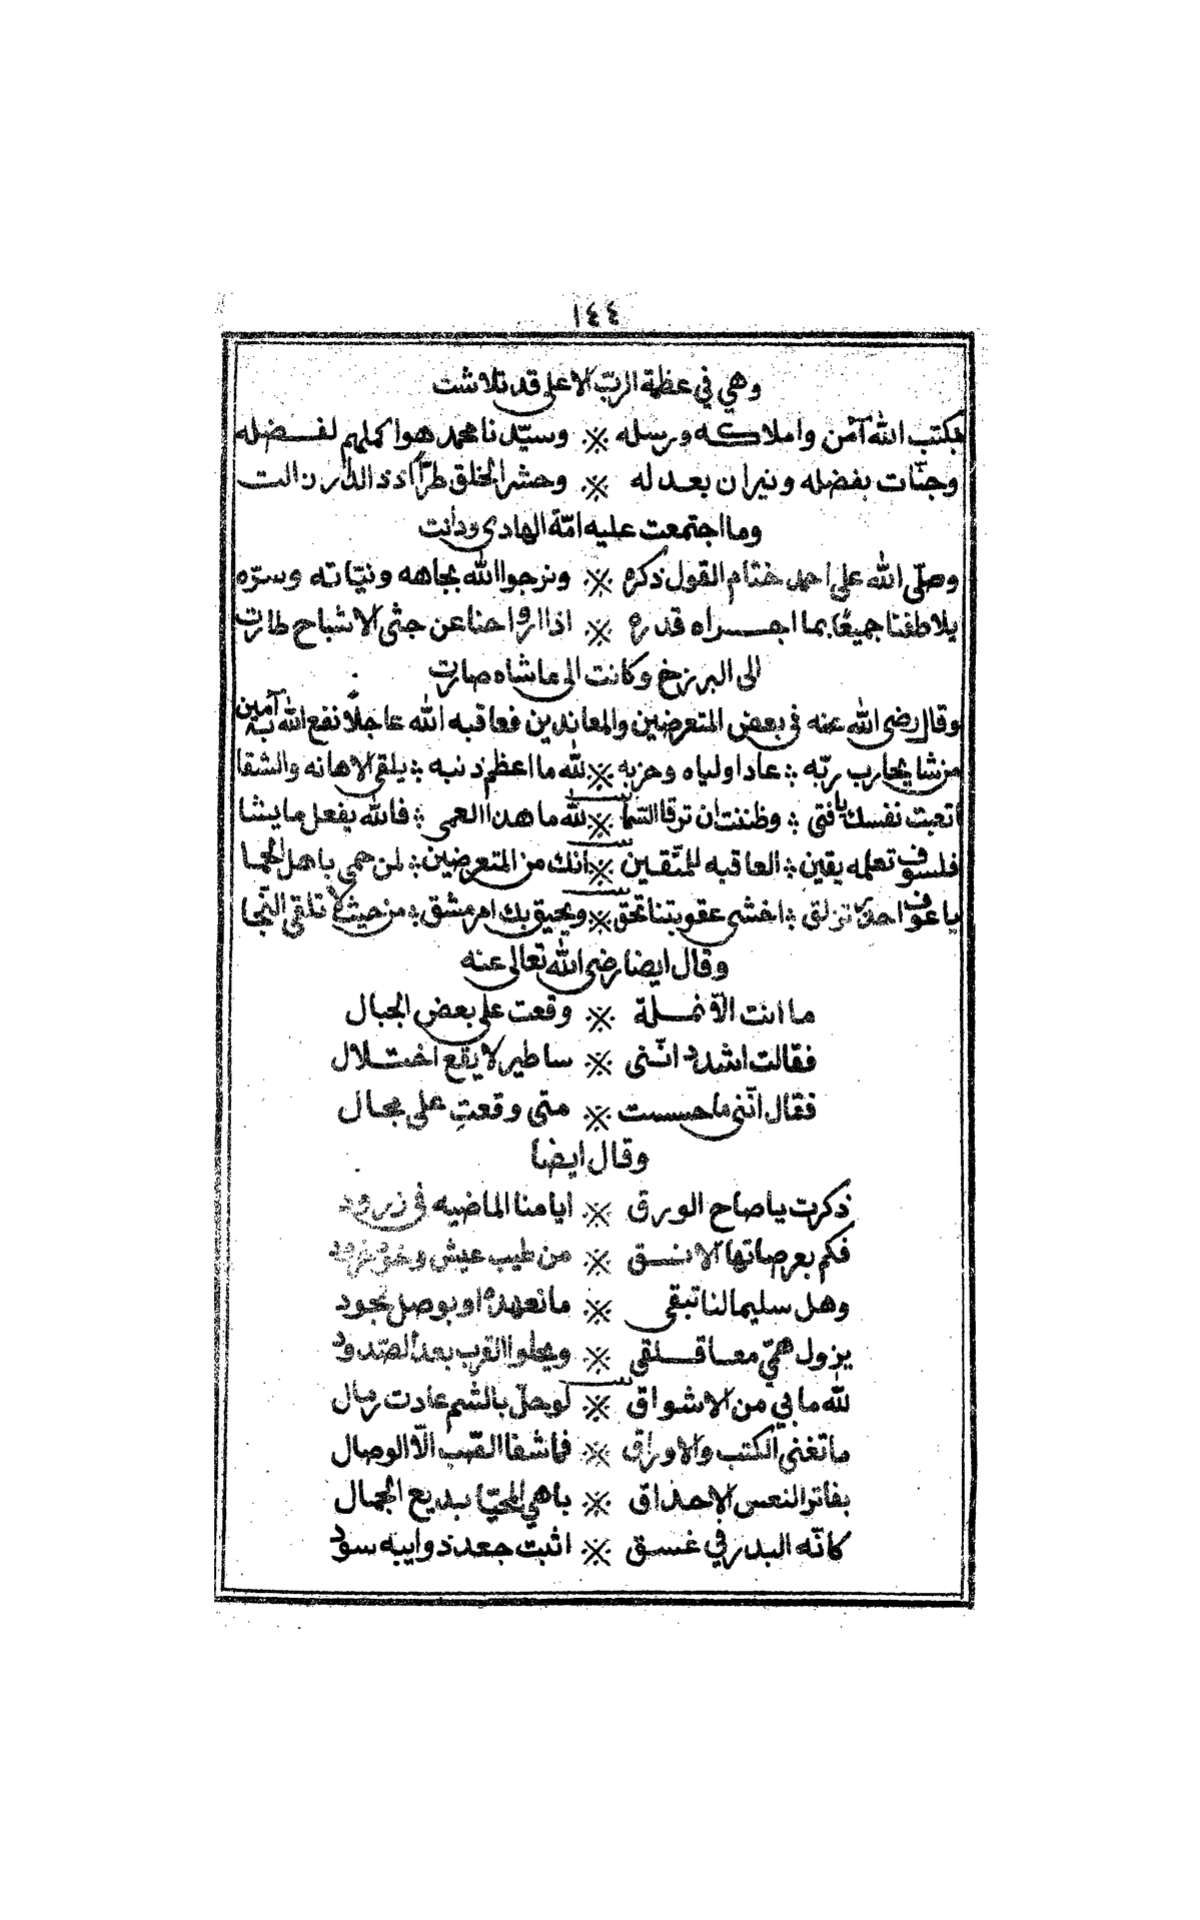 ١٤٤
وهي في عظمة الربّ الاعلى قد تلاشت
بكتب الله آمن واملاكه ورسله ※ وسيّدنا محمد هو اكملهم لفضله
وجنّات بفضله ونيران بعدله ※ وحشر الخلق طرّا
وما اجتمعت عليه امّة الهادى ودانت
وصلّى الله على احمد ختام القول ذكره ※ ونرجوا الله بجاهه ونيّاته وسرّه
يلاطفنا جميعًا بما اجراه قدره ※ اذا ارواحنا عن جثى الاشباح طارت
الى البرزخ وكانت الى ماشاه صارت
وقال رضى الله عنه فى بعض المتعرضين والمعاندين فعاقبه الله عاجلًا نفع الله به آمين
من شا يحارب ربّه ؞ عادا ولياه وحزبه ※ لله ما اعظم ذنبه ؞ يلقى الاهانه والشقا
اتعبت نفسك يا فتى ؞ وظننت ان ترقا السّما ※ لله ما هذا العمى ؞ فالله يفعل مايشا
فلسوف تعلمه يقين ؞ العاقبه للمتّقين ※ انك من المتعرضين ؞ لمن حمى باهل الحما
يا عوف احذر تزلق ؞ اخشى عقوبتنا تحق ※ ويحيق بك امر مشق ؞ من حيث لا تلقى النّجا
وقال ايضا رضى الله تعالى عنه
ما انت الّا نملة ※ وقعت على بعض الجبال
فقالت اشدد انّنى ※ ساطير لا يقع اختلال
فقال انّنى ما حسست ※ متى وقعتِ على مجال
وقال ايضا
ذكرت يا صاح الورق ※ ايامنا الماضيه فى زرود
فكم بعرصاتها الانسق ※ من طيب عيش وخرد
وهل سليما لنا تبقى ※ ما نعهده او بوصل تجود
يزول همّي معا قلقي ※ ويحلوا القرب بعد الصّدود
لله ما بي من الاشواق ※ لو حلّ بالشم عادت رمال
ما تغنى الكتب والاوراق ※ فما شفا القلب الّا الوصال
بفاتر النعس الاحداق ※ باهي المحيّا بديع الجمال
كانّه البدر في غسق ※ اثبت جعد ذوايبه سود